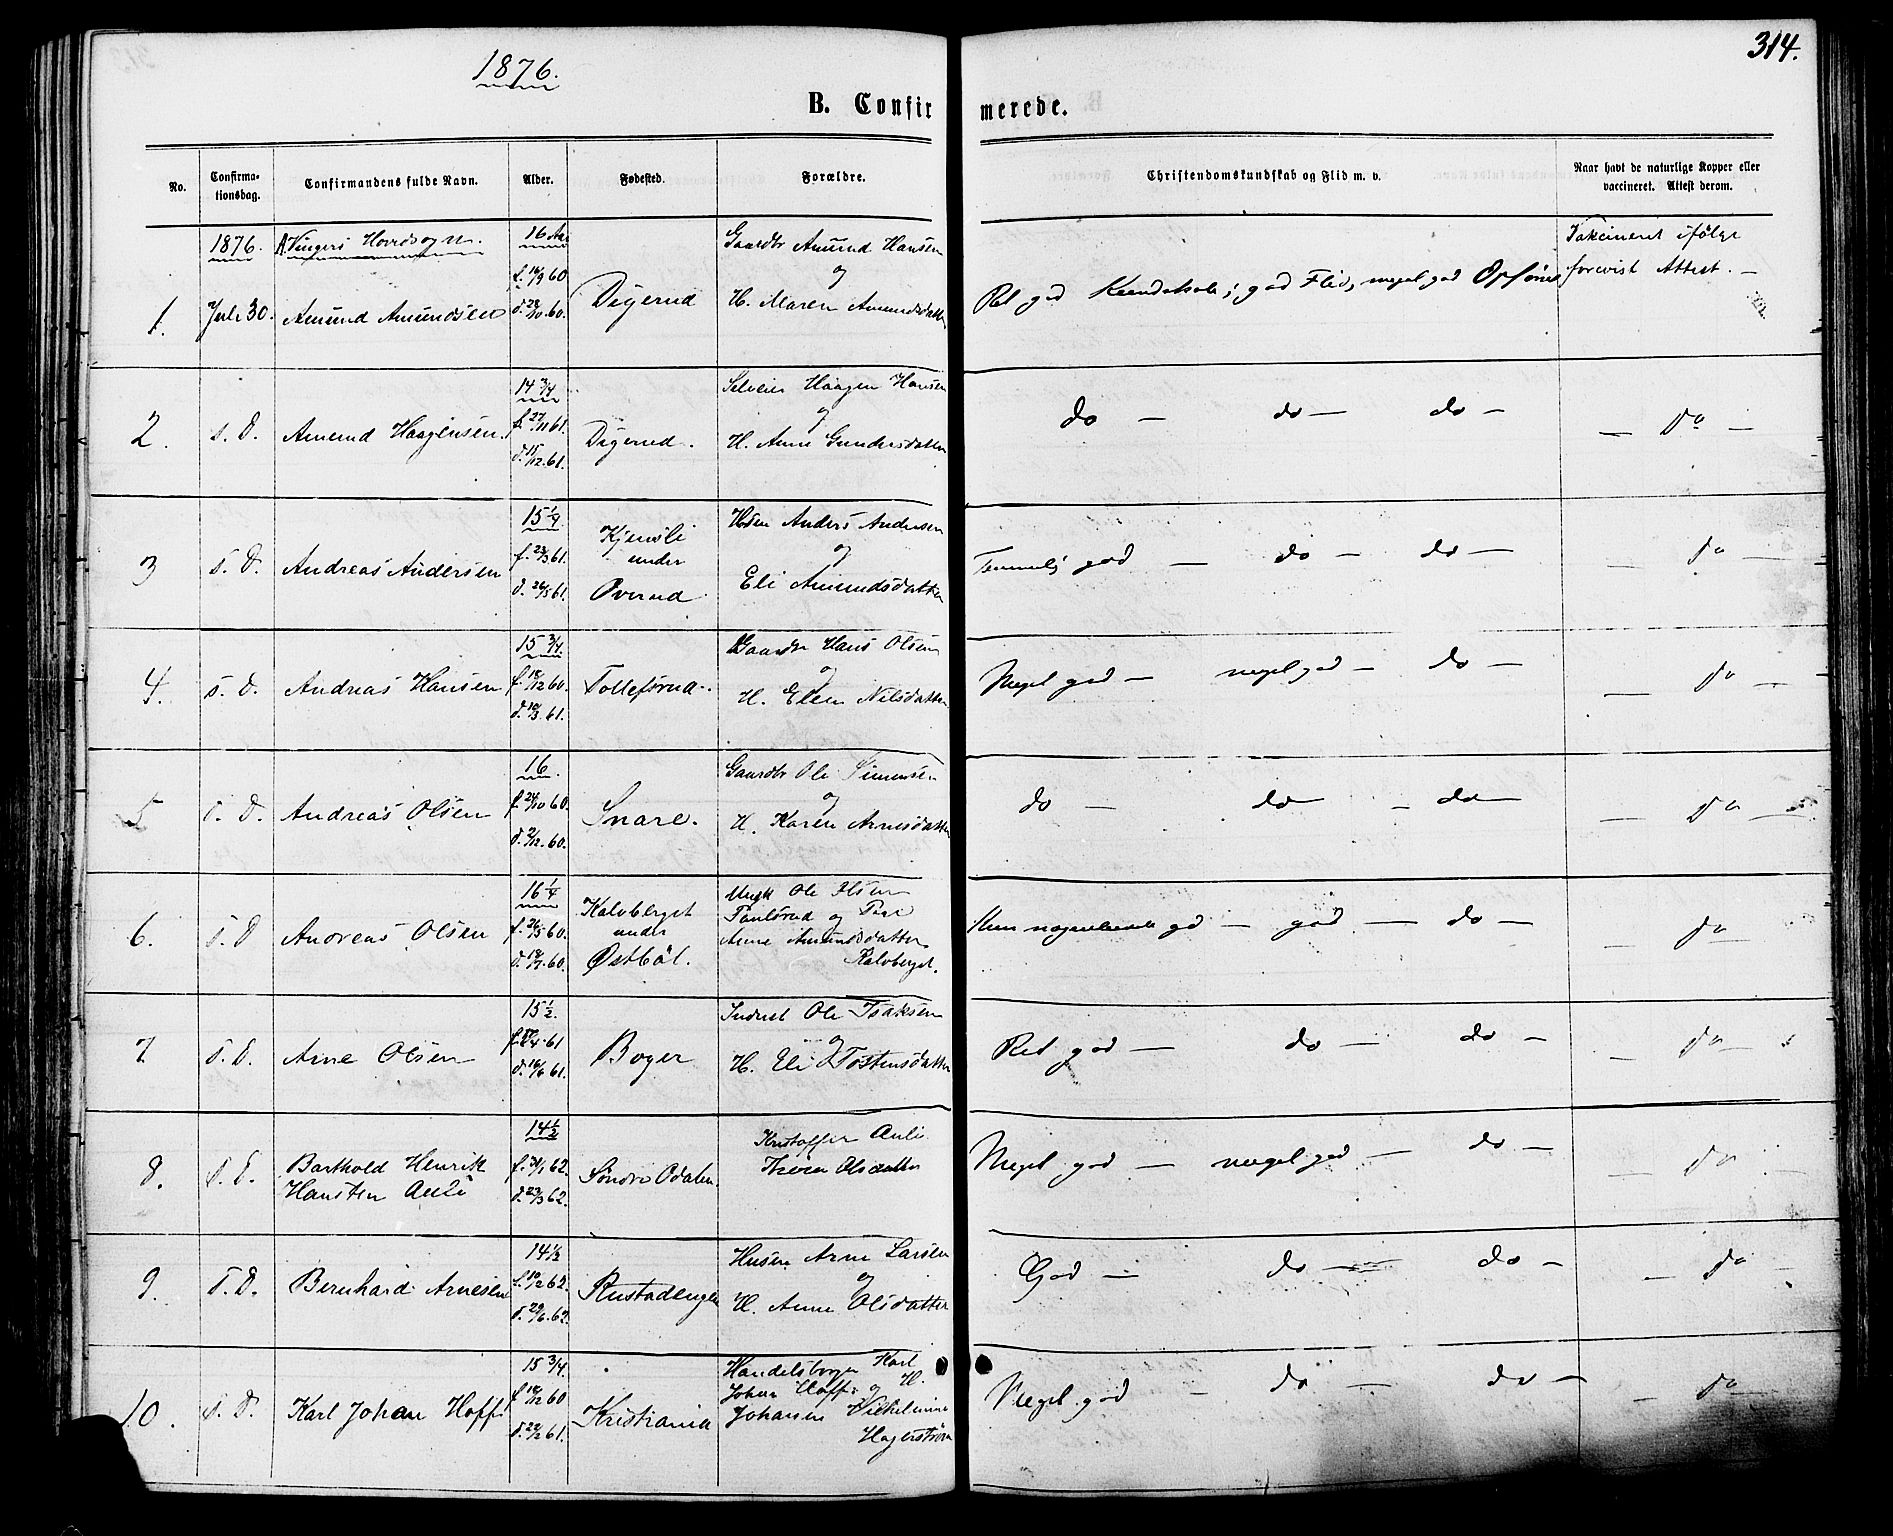 1876.
314.
B. Confirmerede.
No.
Confirma-
tionsdag.
Confirmandens fulde Navn.
Alder.
Fødested.
Forældre.
Christendomskundskab og Flid m. v.
Naar havt de naturlige Kopper eller
vaccineret. Attest derom.
1876. A. Vingers Hovedsogn. 16 Aar Gaardbr Amund Hansen Vakcineret ifølge
f. 14/9 60 og forevist Attest. —
1. Juli 30. Amund Amundsen d. 28/10 60. Digerud H. Maren Amundsdatter Ret god Kundskab; god Flid, meget god Opførsel
14 3/4 Selveier Haagen Hansen
f. 27/11 61. og
2. s. D. Amund Haagensen d. 15/12 61. Digerud. H. Anne Gundersdatter do — do — do — — do —
15 1/4 Kjensli Husm Anders Andersen
f. 23/3 61. under og
3 s. D. Andreas Andersen d. 26/5 61. Overud Eli Amundsdatter Temmelig god do — do — — do —
15 3/4. Gaardbr Hans Olsen
f. 18/12 60. og
4. s. D. Andreas Hansen d. 10/3 61. Tollefsrud H. Elen Nilsdatter Meget god — meget god — do — — do —
16. Gaardbr Ole Simensen
f. 24/10 60. og
5 s. D. Andreas Olsen d. 2/12 60. Snare. H. Karen Arnesdatter do — do — do — — do —
16 1/4 Kalvberget Ugk Ole Olsen
f. 26/5 60. under Paulsrud og Pige
6. s. D. Andreas Olsen d. 18/7 60. Østbøl. Anne Amundsdatter
Kalvberget. Kun nogenlunde god — god — do — — do —
15 1/2. Inderst Ole Isaksen
61 og
7. s. D. Arne Olsen d. 16/6 61. Boger H. Eli Tostensdatter Ret god — do — do — — do —
14 1/2 Kristoffer Aulie
8. s. D. Barthold Henrik f. 31/1 62. Søndre Odalen. Olsdatter Meget god — meget god — do — — do —
Hansten Aulie d. 23/3 62.
14 1/2 Husm Arne Larsen
f. 10/2 62. og
9. s. D. Bernhard Arnesen d. 29/6 62. Rustadengen H. Anne Olsdatter God — do — do — — do —
15 3/4. Handelsborger Karl
f. 18/12 60 Johan Hoff og H.
10. s. D. Karl Johan Hoff d. 22/2 61. Kristiania Johansen Vilhelmine
Hagerstrøm Meget god — do — do — — do —